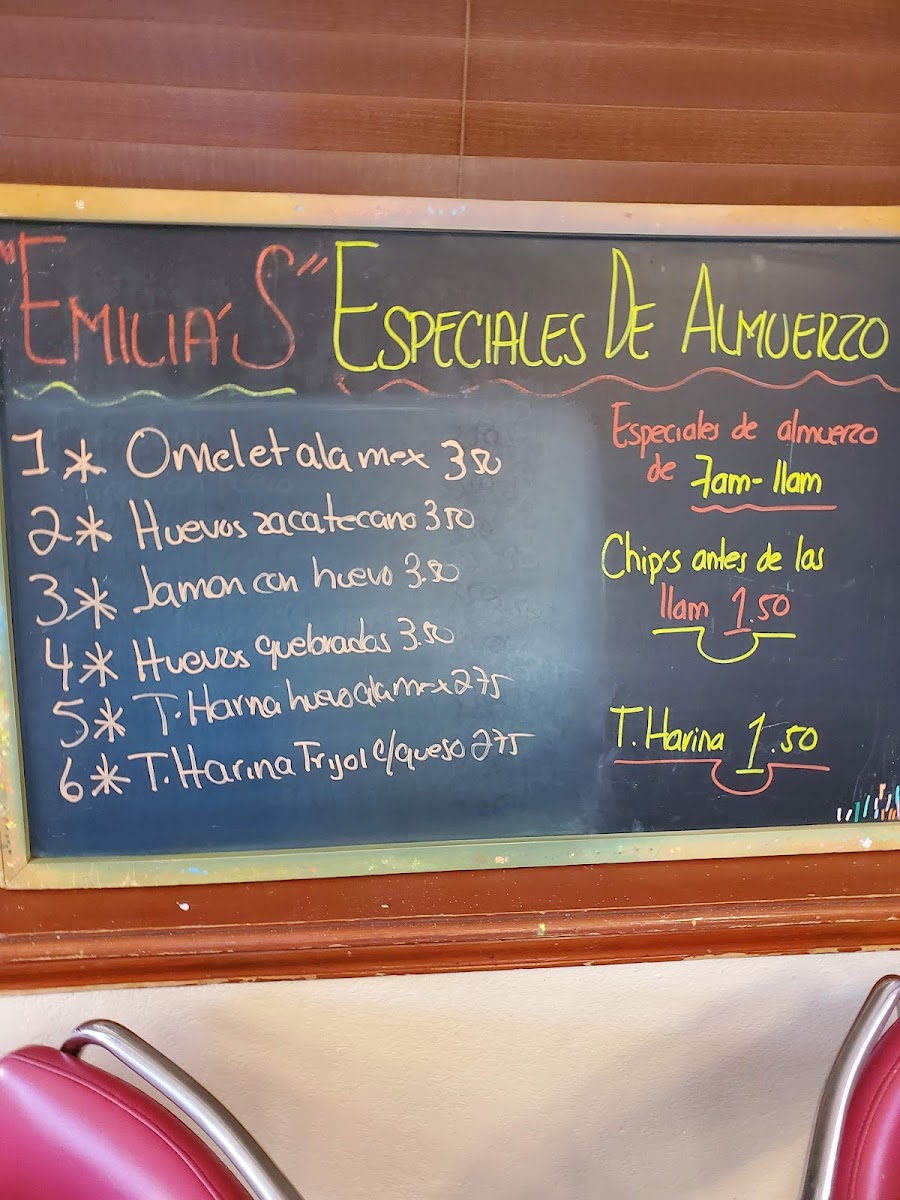 "EMILIA´S" ESPECIALES DE ALMUERZO
1* Omelet a la mex 3 50
2* Huevos zacatecano 3 50
3* Jamon con huevo 3.50
4* Huevos quebrados 3.50
5* T. Harina huevo a la mex 2 75
6* T. Harina Frijol c/queso 2 75
Especiales de almuerzo
de 7am-11am
Chip's antes de las
11am 1.50
T. Harina 1.50